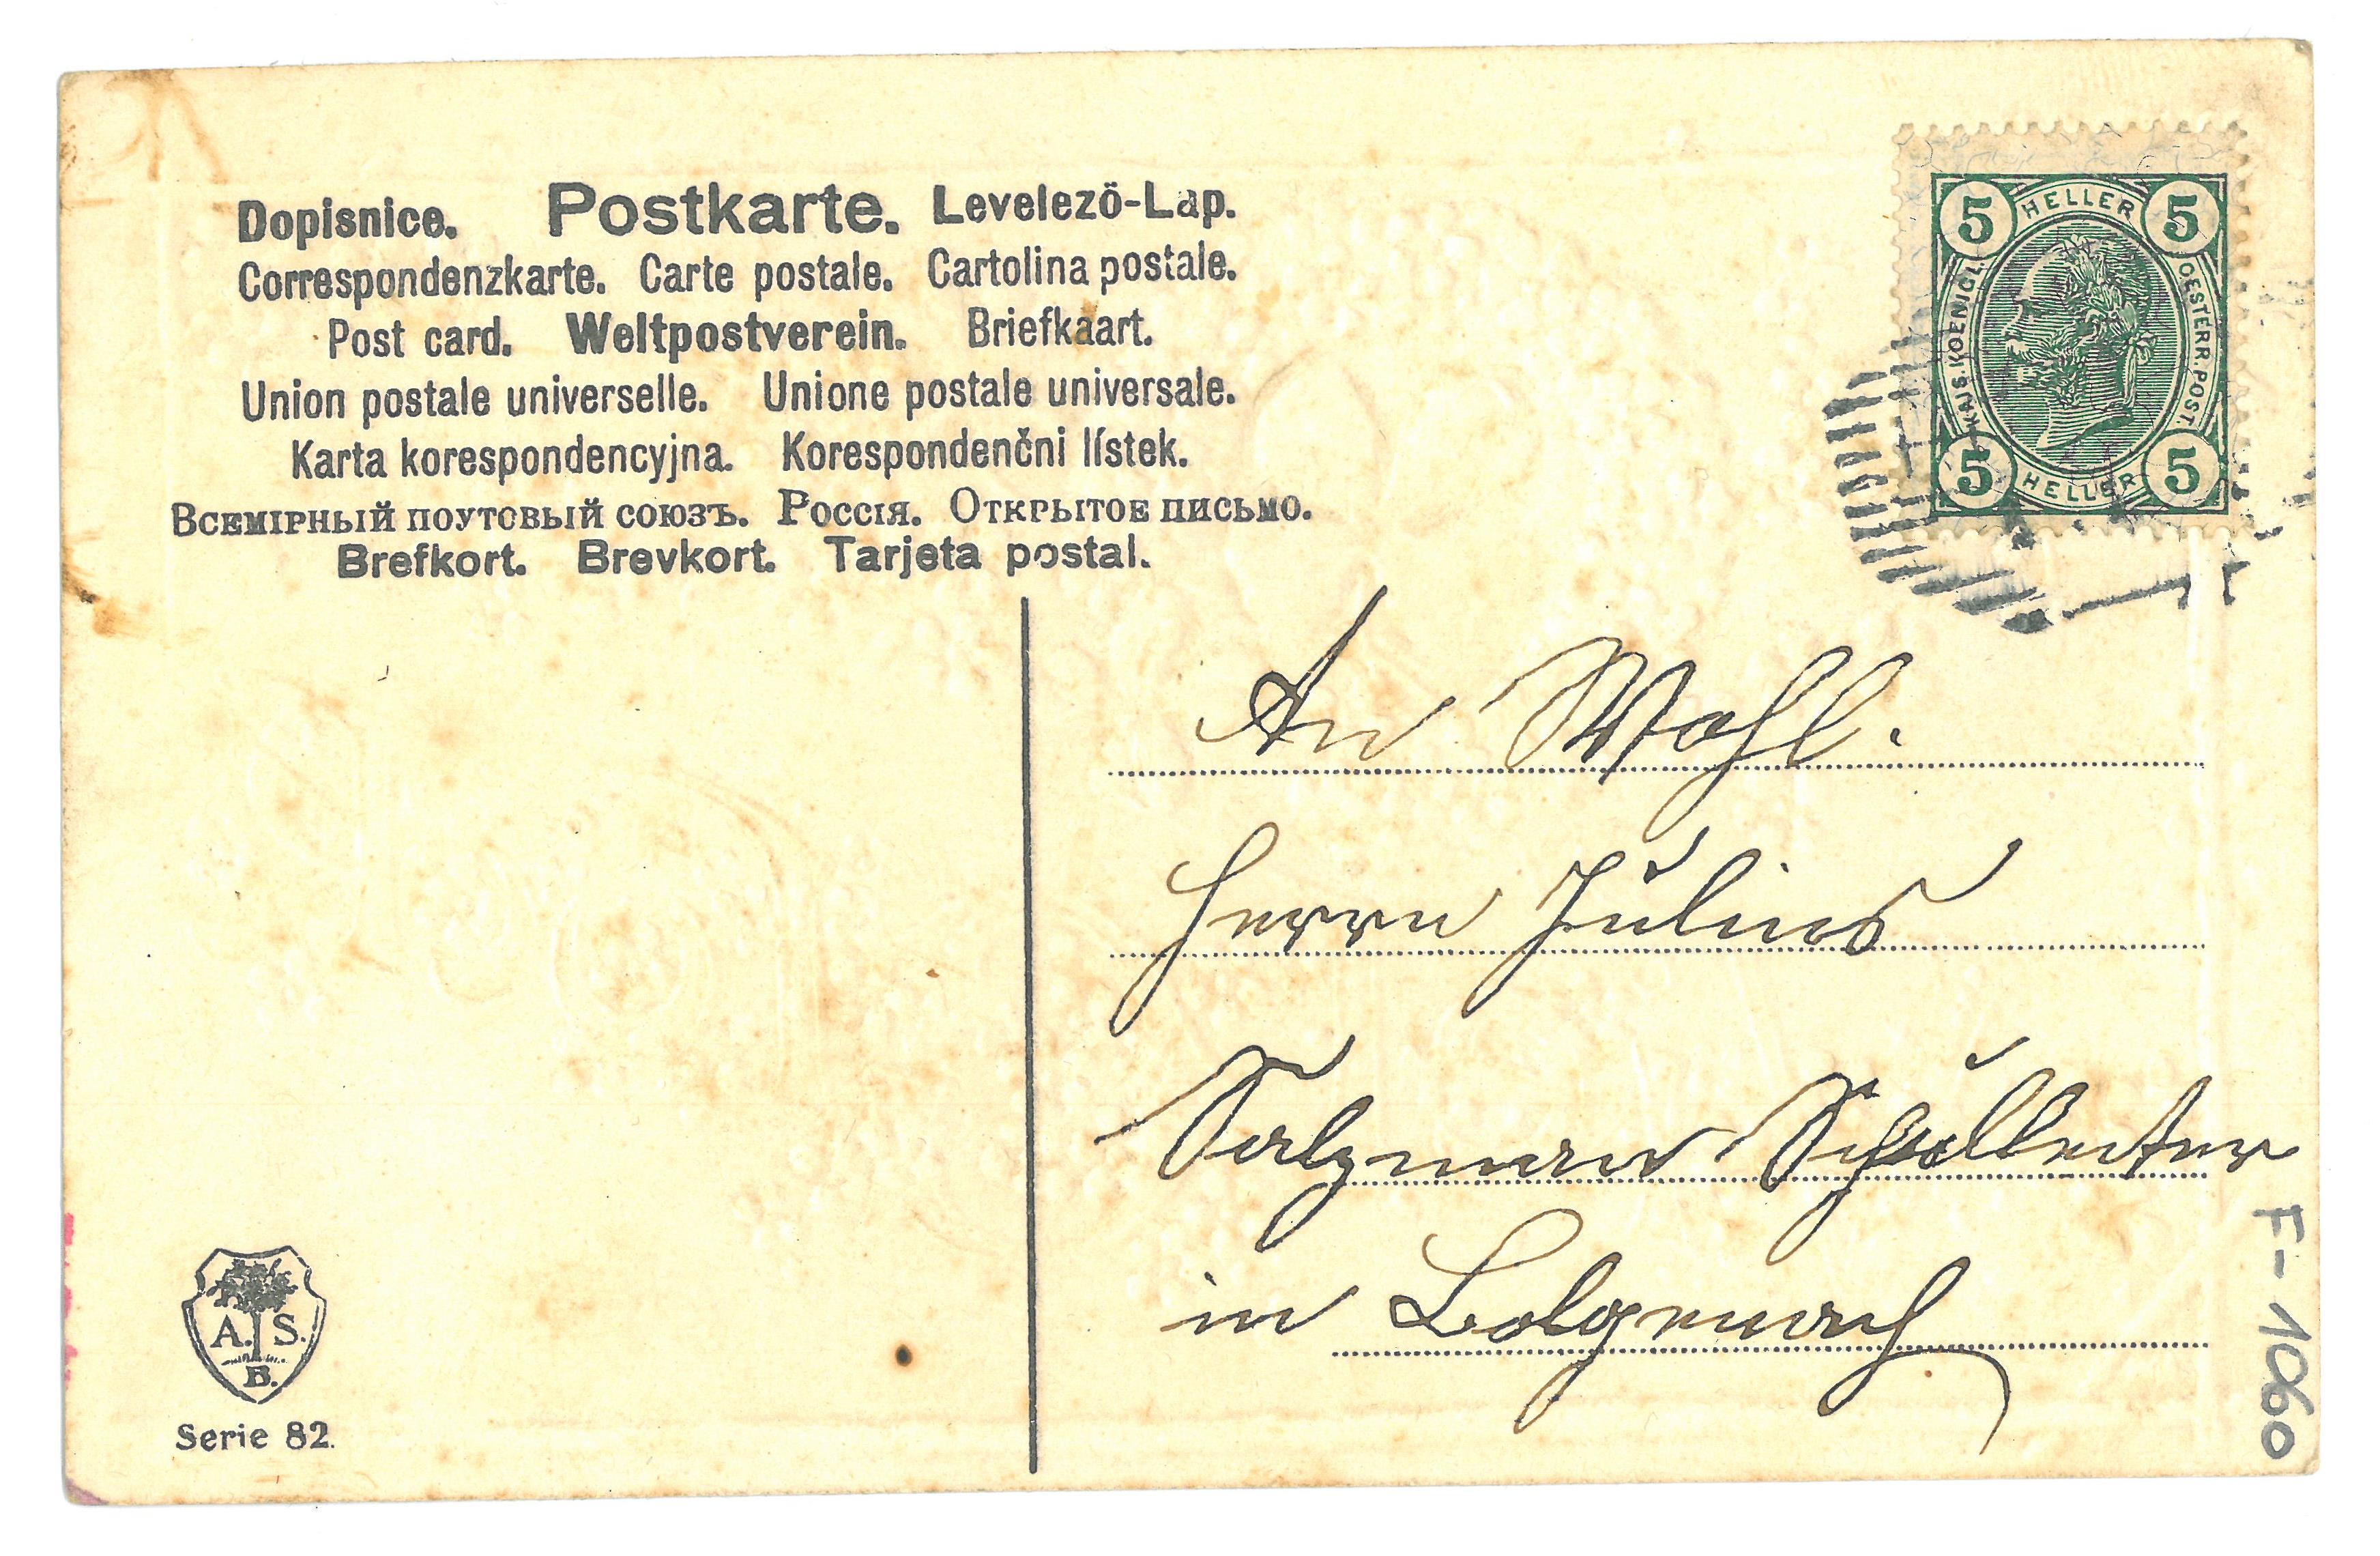 Dopisnice. Postkarte. Levelezö-Lap.
Correspondenzkarte. Carte postale. Cartolina postale.
Post card. Weltpostverein. Briefkaart.
Union postale universelle. Unione postale universale.
Karta korespondencyjna. Korespondenčni lístek.
Всемірный поутовый союзъ. Россія. Открытое письмо.
Brefkort. Brevkort. Tarjeta postal.
5 HELLER 5
KAIS. KOENIGL. OESTERR. POST.
5 HELLER 5
An Wohl.
Herrn Julius
Salzmann Schulleiter
in Bolgenach
A. S.
B.
Serie 82.
F-1060